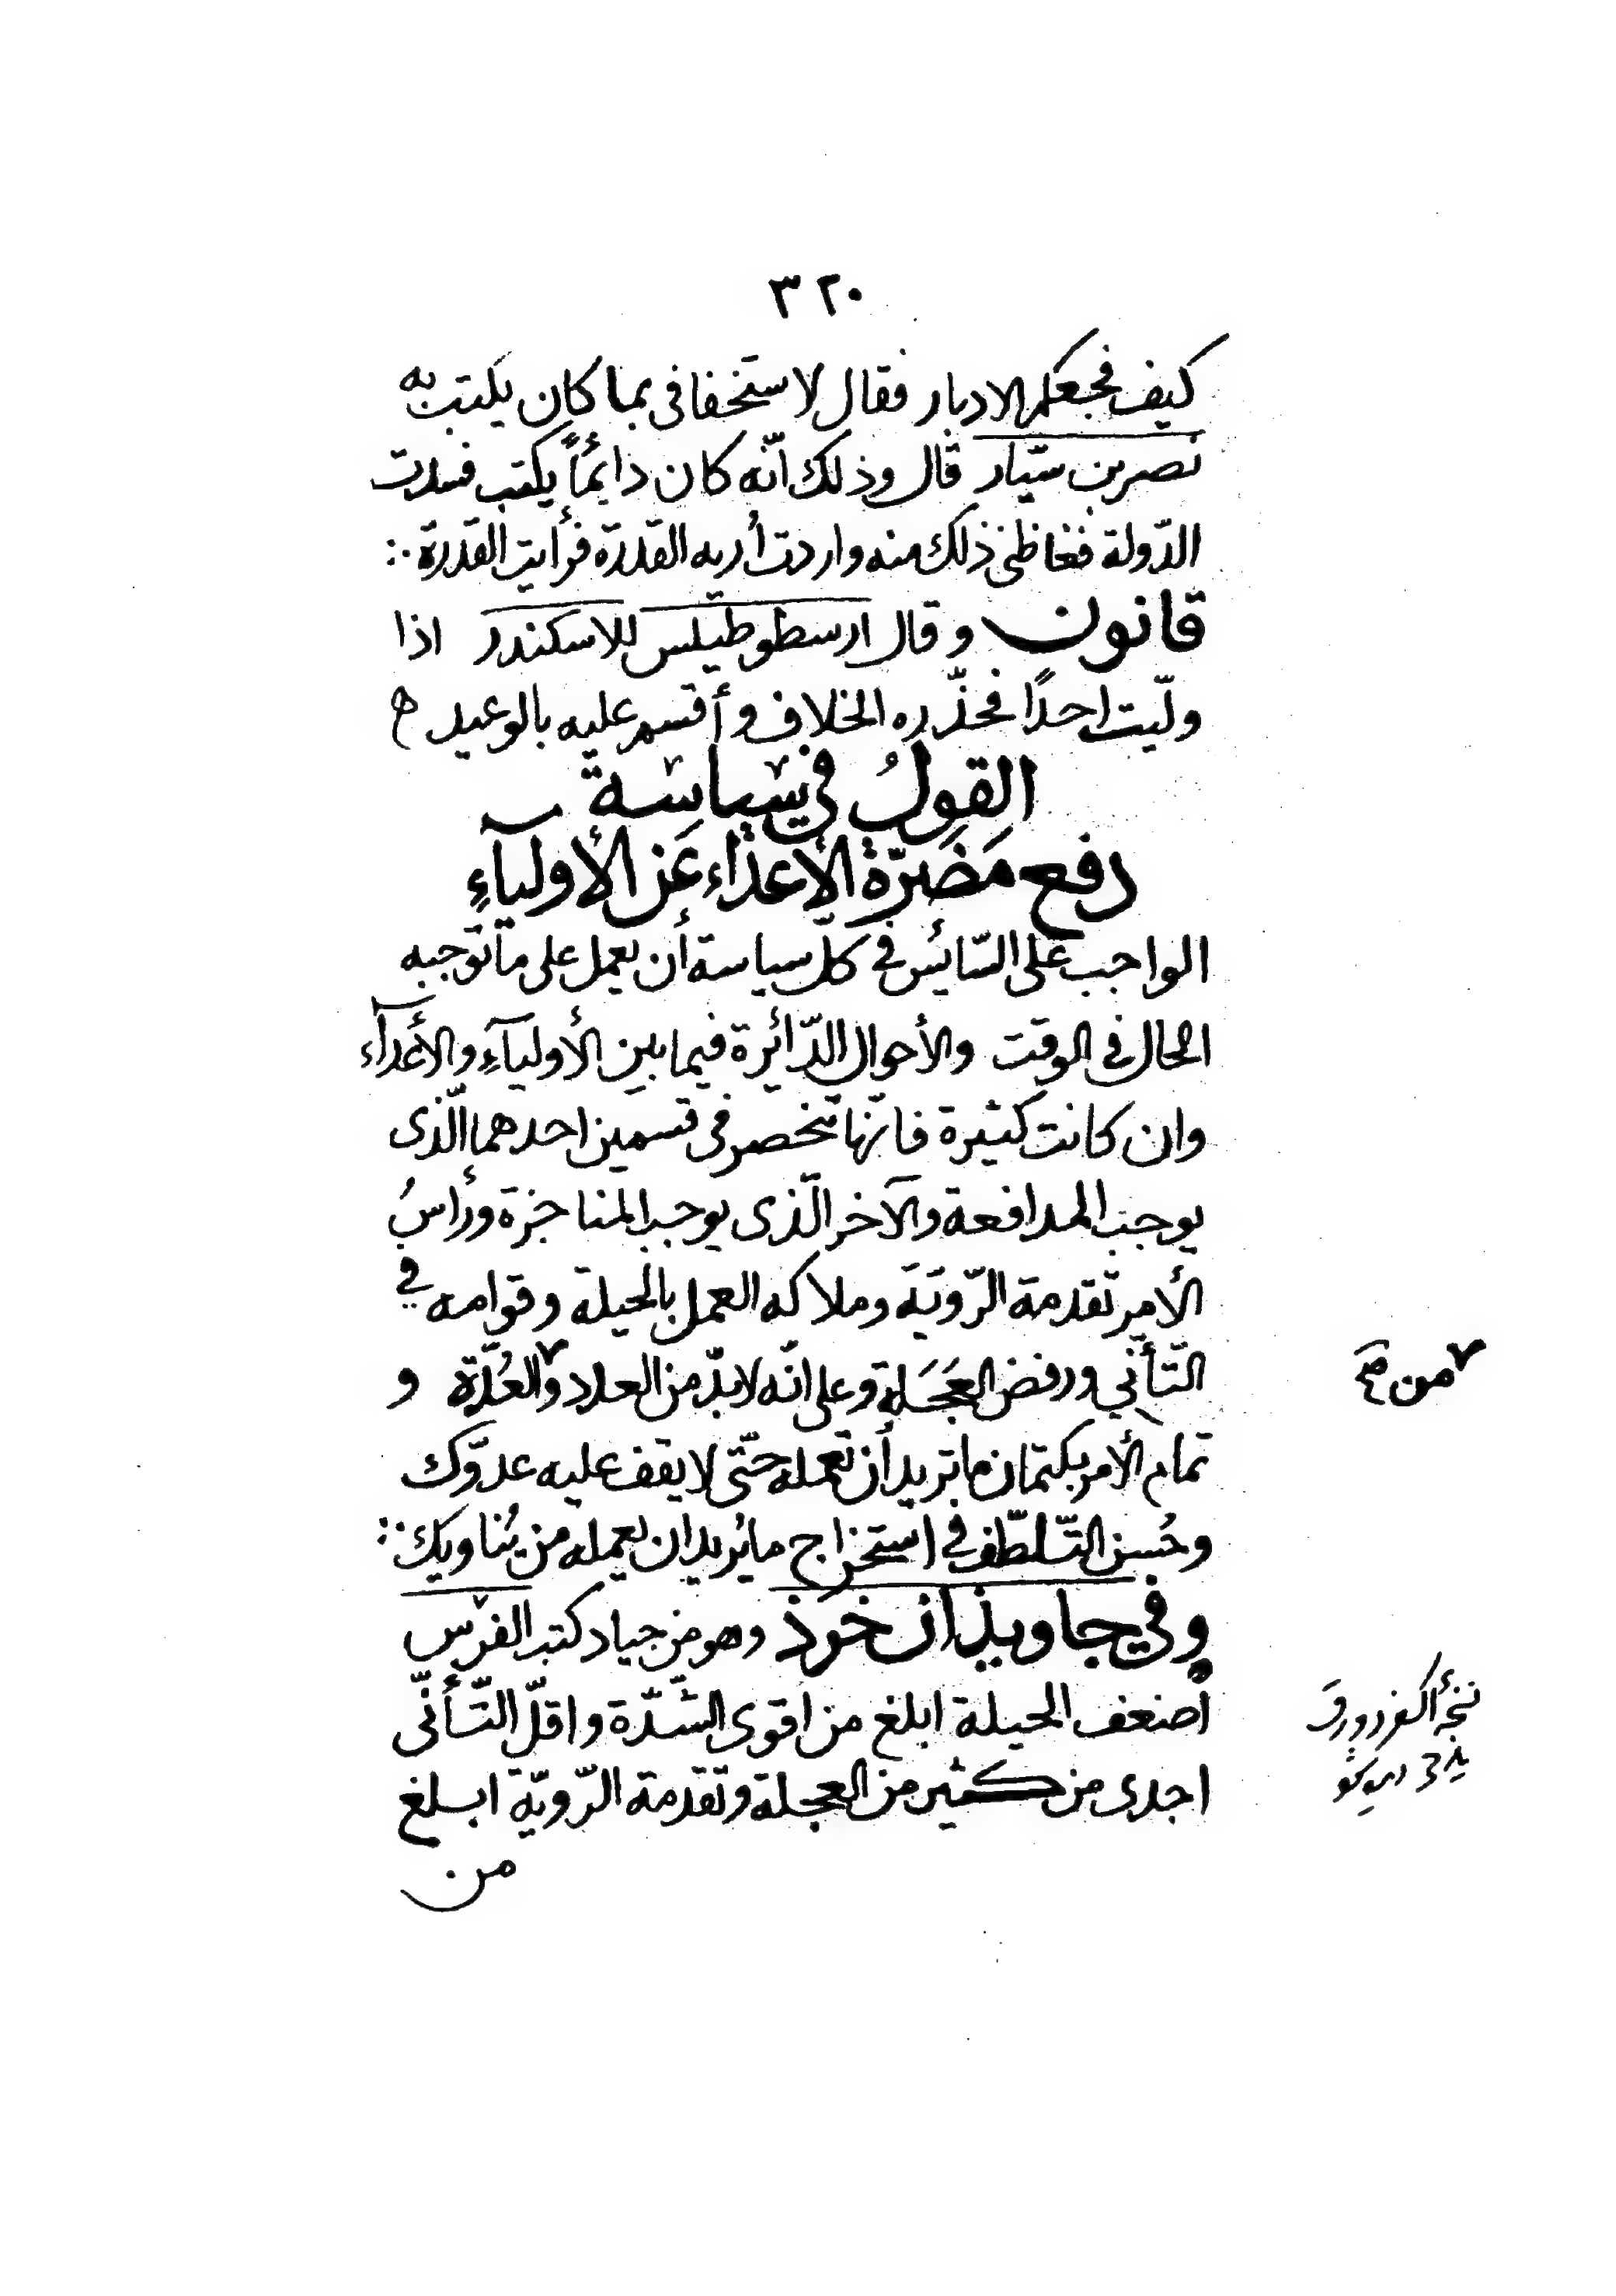 ٣٢٠
كيف فجعكم الادبار فقال لاستخفافى بما كان يكتب به
نصر بن سيّار قال وذلك انّه كان دايمًا يكتب فسدت
الدّولة فغاظنى ذلك منه واردت أريه القدرة فرأيت القدرة
قانون وقال ارسطوطيلس للاسكندر اذا
ولّيت احدًا فحذّره الخلاف وأقسم عليه بالوعيد ه
القولُ في سياسة
دفع مَضَرّة الأعداء عَن الأولياءِ
الواجب على السّائس في كلّ سياسة أن يعمل على ما توجبه
الحال في الوقت والأحوال الدّائرة فيما بين الأولياءِ والأعدآء
وان كانت كثيرة فانّها تنحصر فى قسمين احدهما الّذى
يوجب المدافعة والآخر الّذى يوجب المناجزة ورأسُ
الأمر تقدمة الرّويَة وملاكه العمل بالحيلة وقوامه في
التّأنّي ورفض العَجَلة وعلى انّه لا بدّ من العدد والعُدّة و
تمام الأمر بكتمان ما تريد أن تعمله حتّى لا يقف عليه عدوّك
وحُسن التّلطّف في استخراج ما يُريد ان يعمله من يُناويك
وفي جاويذان خرذ وهو من جياد كتب الفرس
أضعف الحيلة ابلغ من اقوى الشّدّة واقلّ التّأنّى
اجدى من كثير من العجلة وتقدمة الرّويّة ابلغ
من
من صح